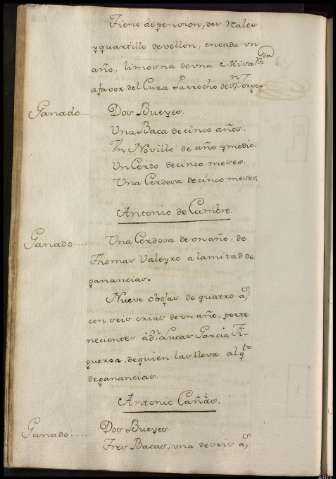 Tiene de pension, dos Reales
y quartillo de vellon, en cada vn
año, limosna de vna Misa
a favor del Cura Parrocho de
Ganado... Dos Bueyes.
Una Baca de cinco años.
Un Novillo de año y medio.
Un Cerdo de cinco meses.
Una Cerdosa de cinco meses.
Antonio de
Ganado.... Una Cerdosa de vn año, de
Thomas Valeyro a la mitad de
ganancias.
Nueve obejas de quatro as
con seis crias de vn año, perte
necientes a Dn Lucas Garcia Fi-
gueroa, de quien las lleva al qto
de ganancias.
Antonio Cañás.
Ganado.... Dos Bueyes.
Tres Bacas, vna de seis as,